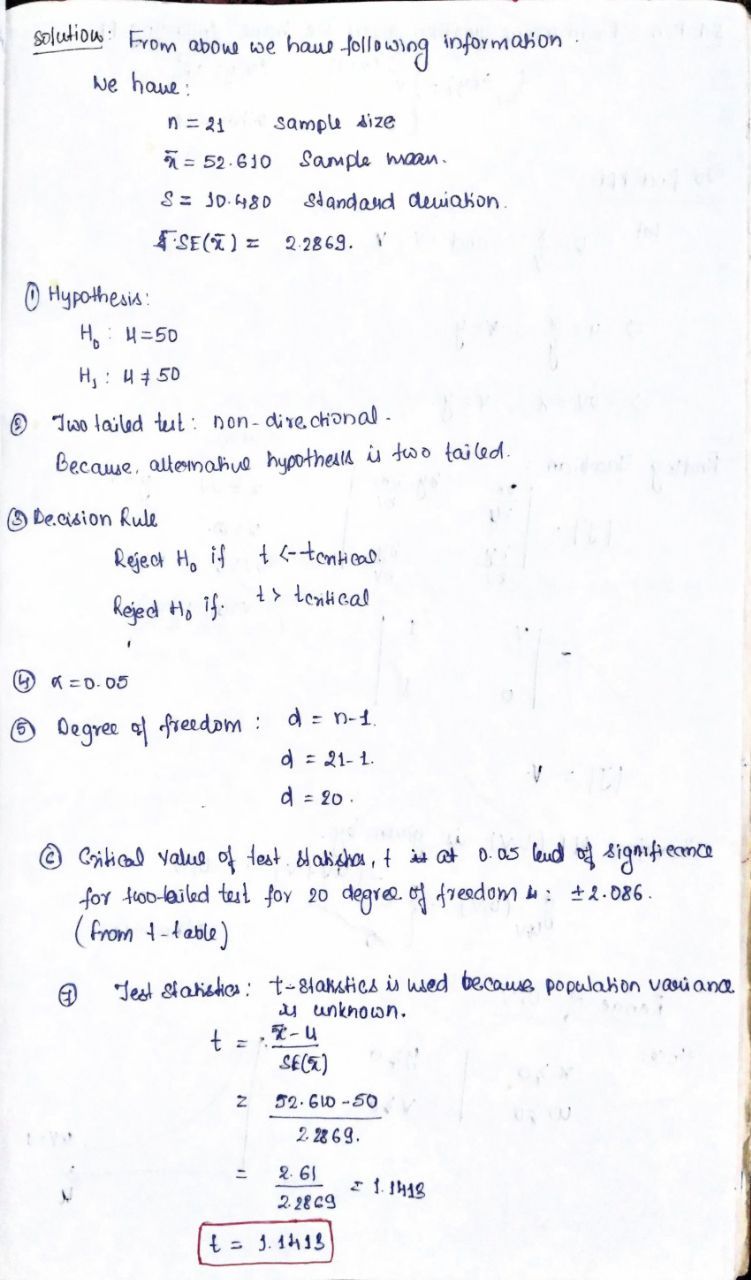 solution: From above we have following information.
We have:
n = 21 sample size
x̄ = 52.610 Sample mean.
S = 10.480 Standard deviation.
SE(x̄) = 2.2869.
① Hypothesis:
H₀ : μ = 50
H₁ : μ ≠ 50
② Two tailed test: non-directional.
Because, alternative hypothesis is two tailed.
③ Decision Rule
Reject H₀ if t < -tcritical.
Reject H₀ if. t > tcritical
④ α = 0.05
⑤ Degree of freedom : d = n-1.
d = 21-1.
d = 20.
⑥ Critical value of test statistics, t at 0.05 level of significance
for two-tailed test for 20 degree of freedom is: ±2.086.
(from t-table)
⑦ Test Statistics: t-statistics is used because population variance
is unknown.
t = x̄-μ / SE(x̄)
= 52.610-50 / 2.2869.
= 2.61 / 2.2869 = 1.1413
t = 1.1413